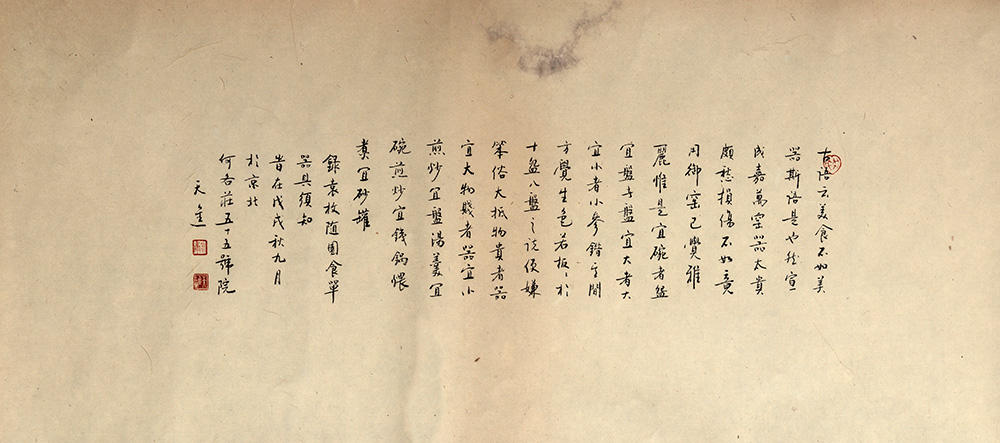 古語云美食不如美
器斯語是也然宣
成嘉萬窑器太貴
頗愁損傷不如竟
用御窑已覺雅
麗惟是宜碗者盌
宜盤者盤宜大者大
宜小者小參錯其間
方覺生色若板〻於
十盌八盤之说便嫌
笨俗大抵物貴者器
宜大物賤者器宜小
煎炒宜盤湯羹宜
碗煎炒宜錢鍋煨
煮宜砂罐
錄袁枚随園食單
器具須知
昔在戊戌秋九月
於京北
何各莊五十五號院
天